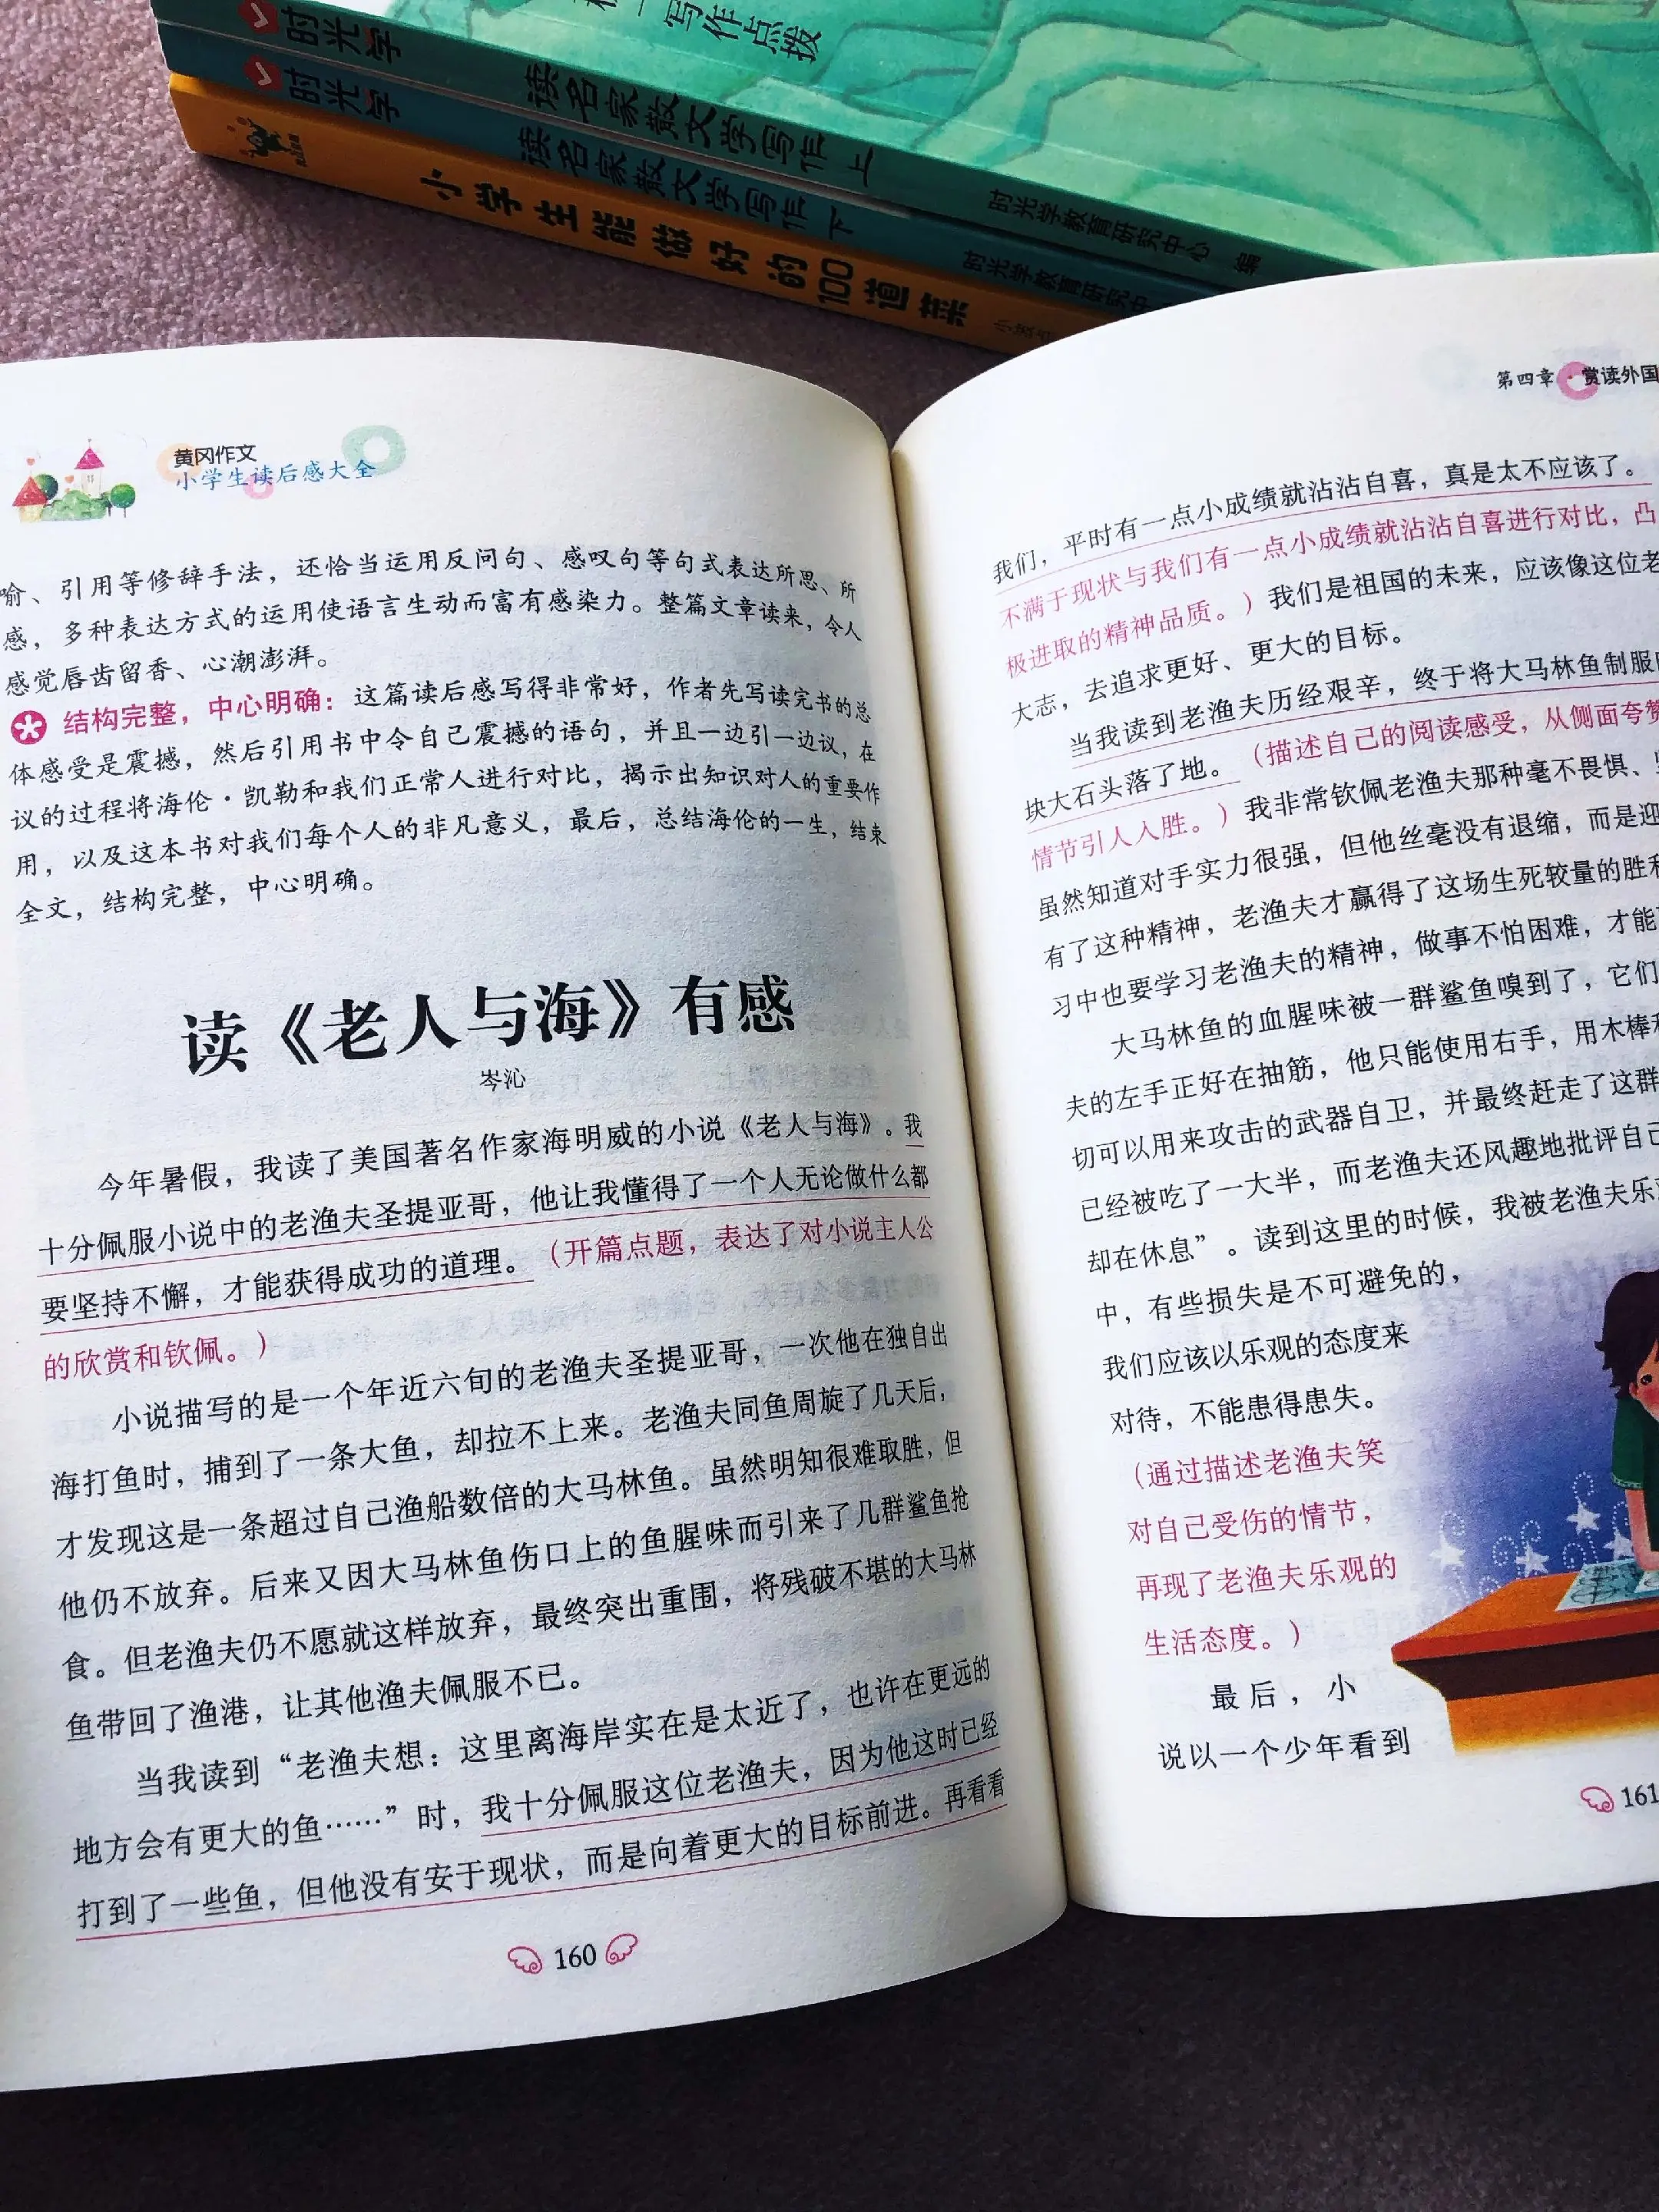 写作点拨
时光学
读名家散文学写作 上
时光学教育研究中心 编
时光学
读名家散文学写作 下
时光学教育研究中
小学生能做好的100道菜
黄冈作文
小学生读后感大全
喻、引用等修辞手法，还恰当运用反问句、感叹句等句式表达所思、所
感，多种表达方式的运用使语言生动而富有感染力。整篇文章读来，令人
感觉唇齿留香、心潮澎湃。
结构完整，中心明确：这篇读后感写得非常好，作者先写读完书的总
体感受是震撼，然后引用书中令自己震撼的语句，并且一边引一边议，在
议的过程将海伦·凯勒和我们正常人进行对比，揭示出知识对人的重要作
用，以及这本书对我们每个人的非凡意义，最后，总结海伦的一生，结束
全文，结构完整，中心明确。
读《老人与海》有感
岑沁
今年暑假，我读了美国著名作家海明威的小说《老人与海》。我
十分佩服小说中的老渔夫圣提亚哥，他让我懂得了一个人无论做什么都
要坚持不懈，才能获得成功的道理。（开篇点题，表达了对小说主人公
的欣赏和钦佩。）
小说描写的是一个年近六旬的老渔夫圣提亚哥，一次他在独自出
海打鱼时，捕到了一条大鱼，却拉不上来。老渔夫同鱼周旋了几天后，
才发现这是一条超过自己渔船数倍的大马林鱼。虽然明知很难取胜，但
他仍不放弃。后来又因大马林鱼伤口上的鱼腥味而引来了几群鲨鱼抢
食。但老渔夫仍不愿就这样放弃，最终突出重围，将残破不堪的大马林
鱼带回了渔港，让其他渔夫佩服不已。
当我读到“老渔夫想：这里离海岸实在是太近了，也许在更远的
地方会有更大的鱼……”时，我十分佩服这位老渔夫，因为他这时已经
打到了一些鱼，但他没有安于现状，而是向着更大的目标前进。再看看
160
第四章·赏读外国
我们，平时有一点小成绩就沾沾自喜，真是太不应该了。
不满于现状与我们有一点小成绩就沾沾自喜进行对比，凸
极进取的精神品质。）我们是祖国的未来，应该像这位老
大志，去追求更好、更大的目标。
当我读到老渔夫历经艰辛，终于将大马林鱼制服
块大石头落了地。（描述自己的阅读感受，从侧面夸赞
情节引人入胜。）我非常钦佩老渔夫那种毫不畏惧、
虽然知道对手实力很强，但他丝毫没有退缩，而是迎
有了这种精神，老渔夫才赢得了这场生死较量的胜利
习中也要学习老渔夫的精神，做事不怕困难，才能
大马林鱼的血腥味被一群鲨鱼嗅到了，它们
夫的左手正好在抽筋，他只能使用右手，用木棒和
切可以用来攻击的武器自卫，并最终赶走了这群
已经被吃了一大半，而老渔夫还风趣地批评自己
却在休息”。读到这里的时候，我被老渔夫乐
中，有些损失是不可避免的，
我们应该以乐观的态度来
对待，不能患得患失。
（通过描述老渔夫笑
对自己受伤的情节，
再现了老渔夫乐观的
生活态度。）
最后，小
说以一个少年看到
161